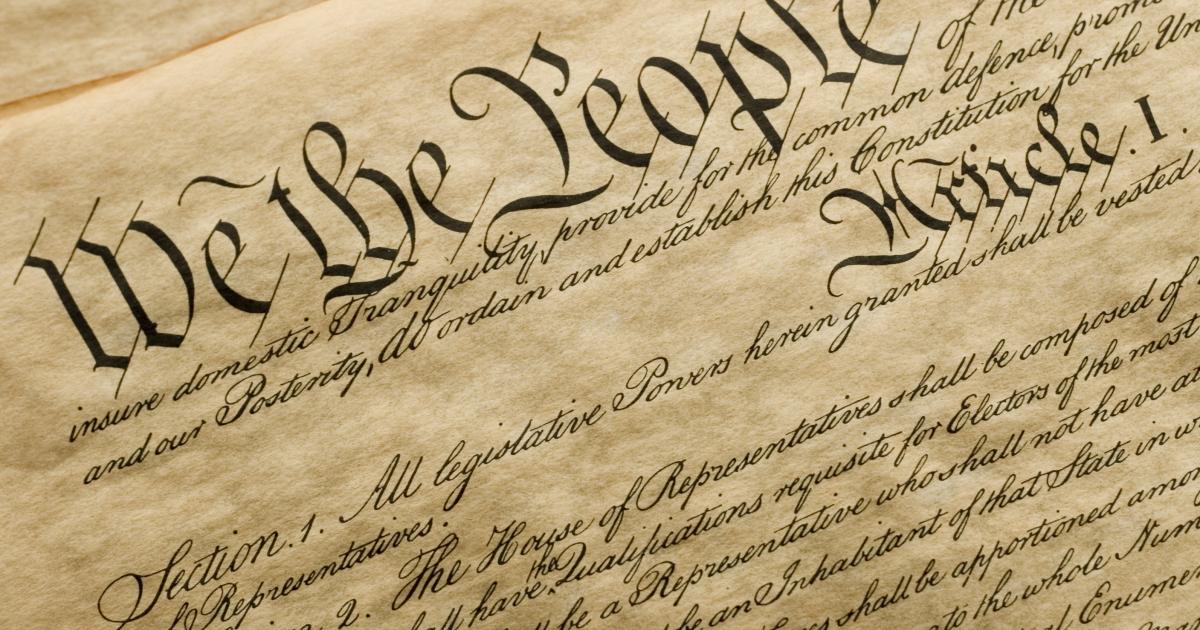 We the People of the
insure domestic Tranquility, provide for the common defence, promo
and our Posterity, do ordain and establish this Constitution for the Un
Article. I.
Section. 1. All legislative Powers herein granted shall be vested
Representatives.
2. The House of Representatives shall be composed of
have the Qualifications requisite for Electors of the most
be a Representative who shall not have at
be an Inhabitant of that State in w
shall be apportioned amo
to the whole Num
Enumer